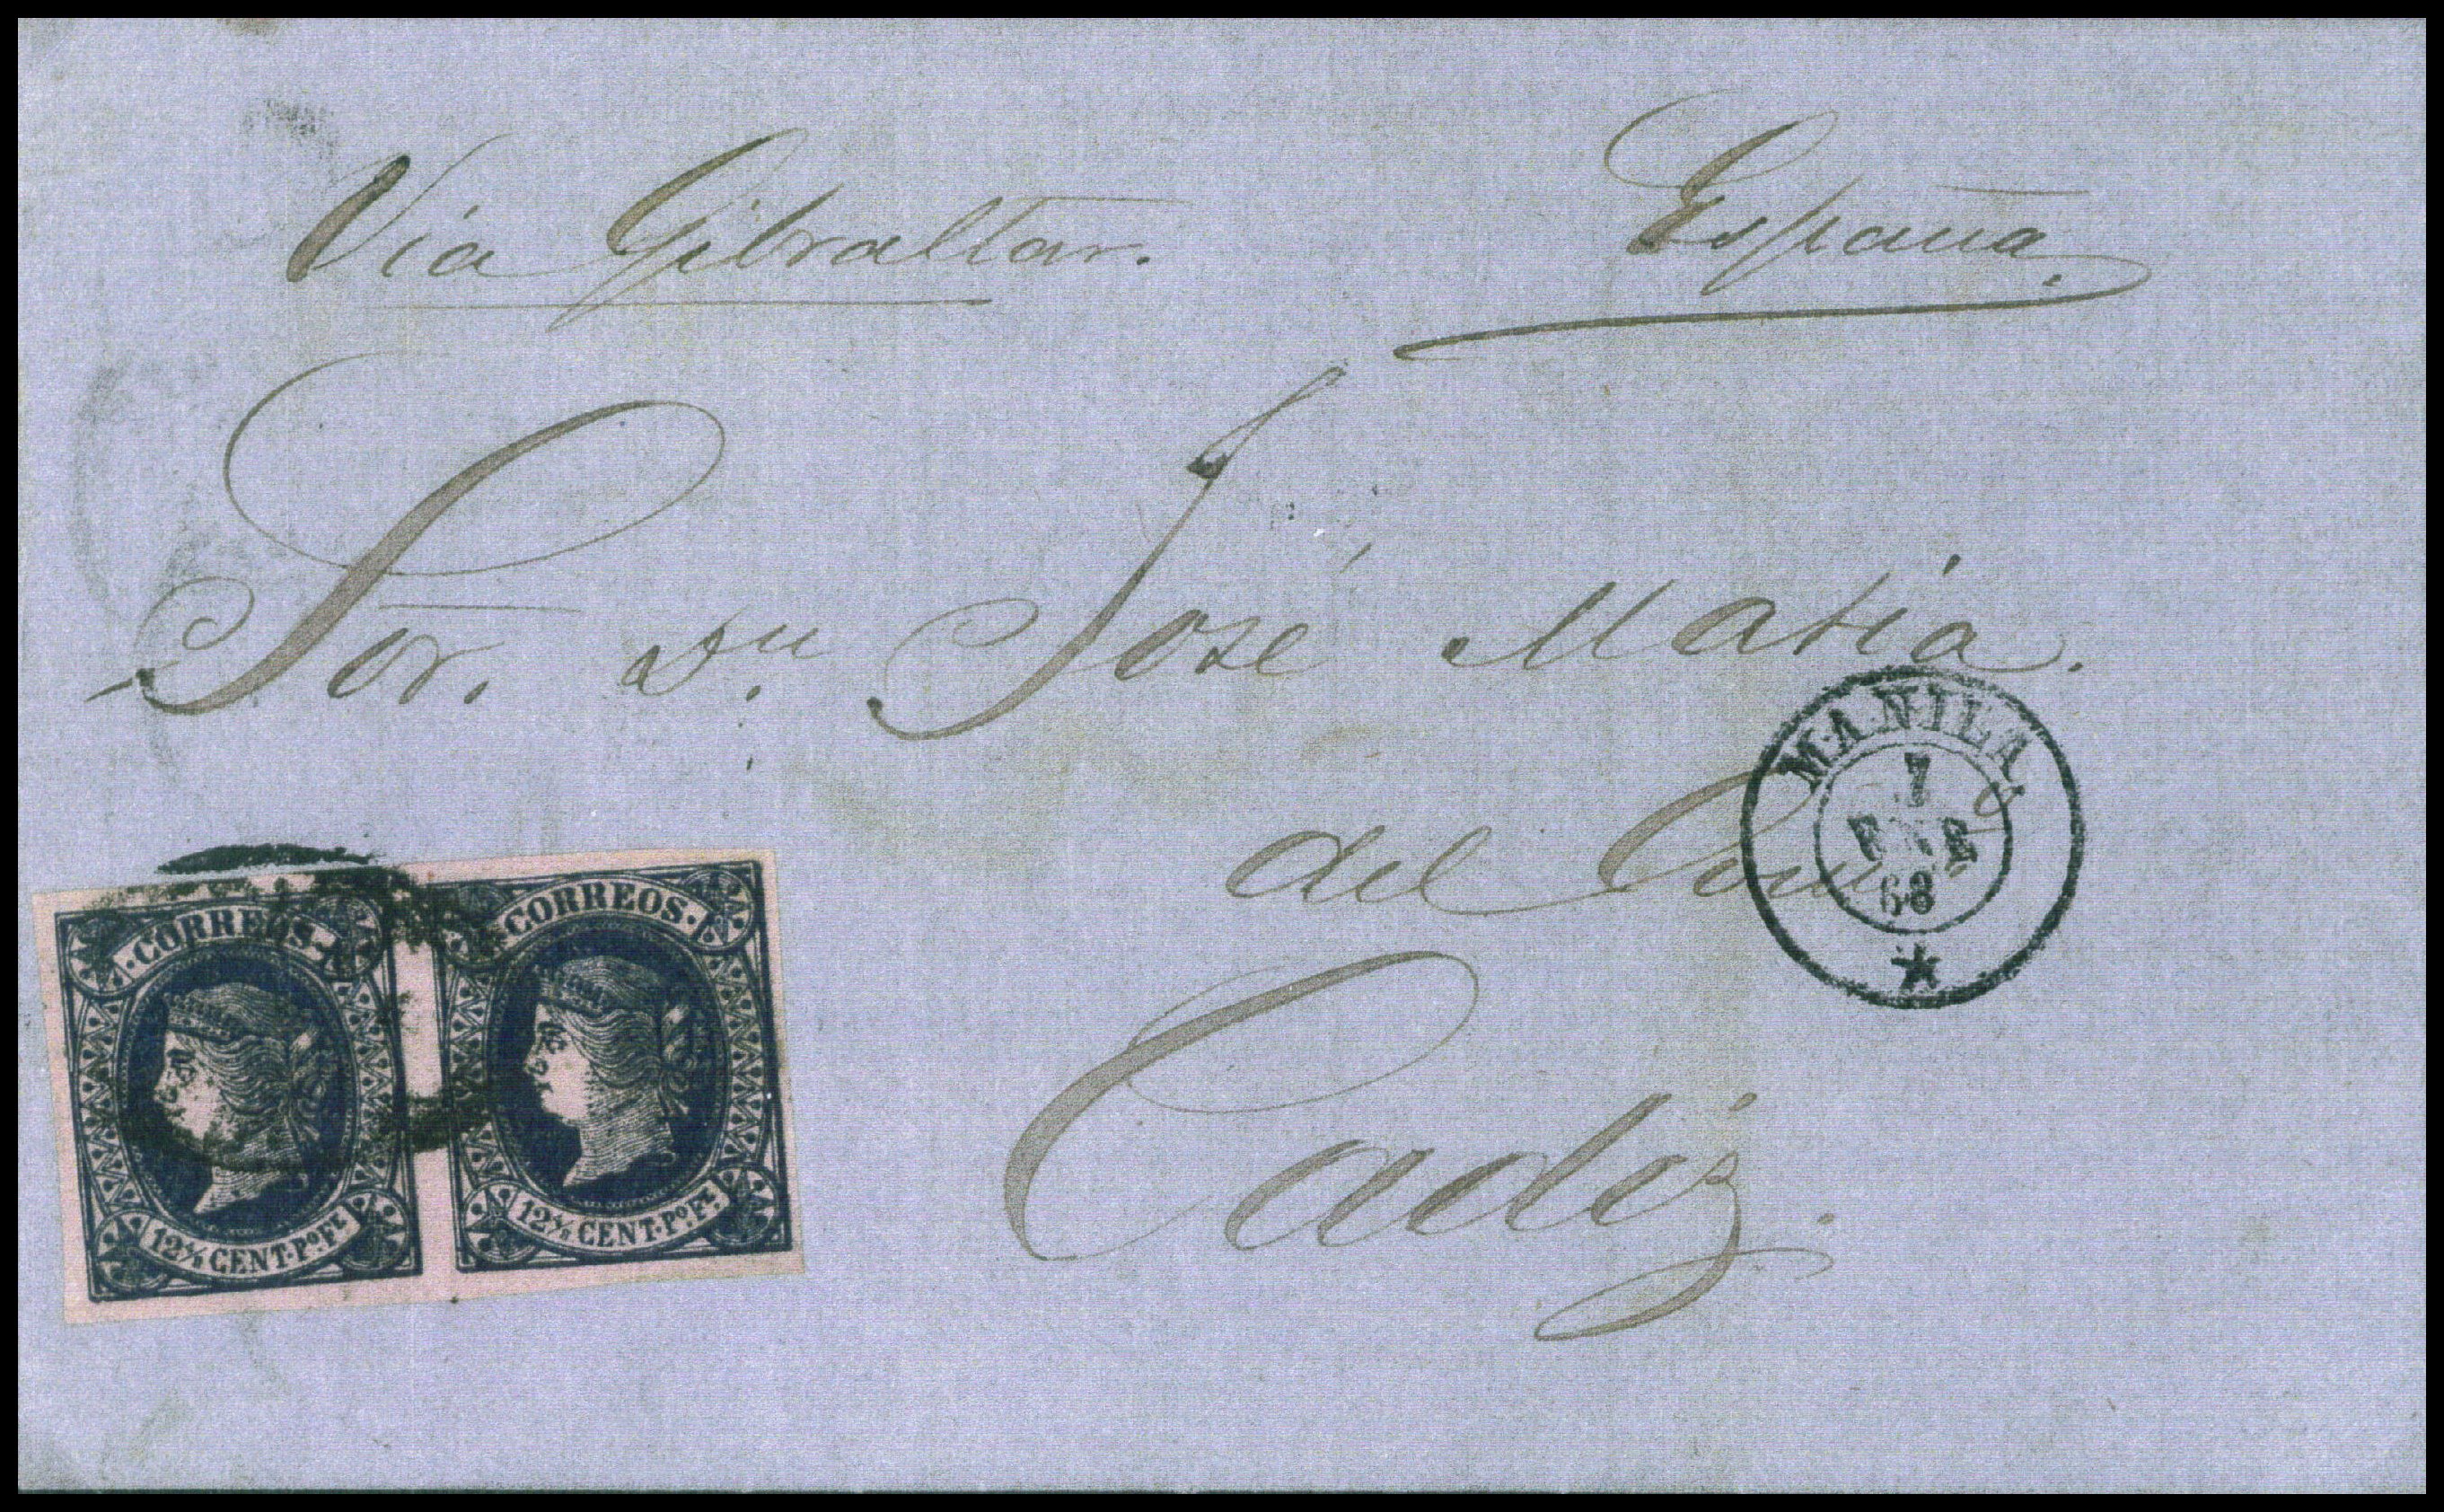 Via Gibraltar. España.
Sor. Dn. José Matia.
del
Cadiz.
MANILA
7
68
CORREOS
12 4/8 CENT. Po. Fe.
CORREOS
12 4/8 CENT. Po. Fe.